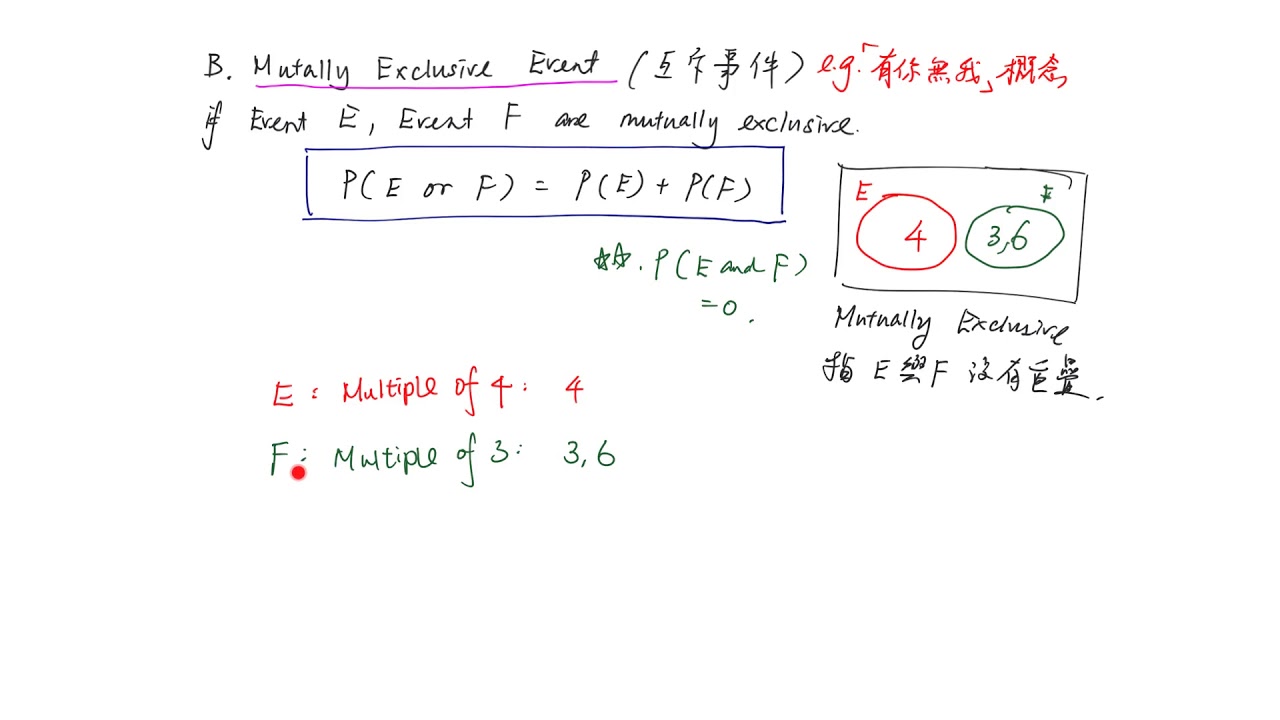 B. Mutally Exclusive Event (互斥事件) e.g.「有你無我」概念
if Event E, Event F are mutually exclusive.
P(E or F) = P(E) + P(F)
E F
4 3,6
☆☆. P(E and F)
=0.
Mutually Exclusive
指 E 與 F 沒有重疊.
E : Multiple of 4 : 4
F : Multiple of 3 : 3,6